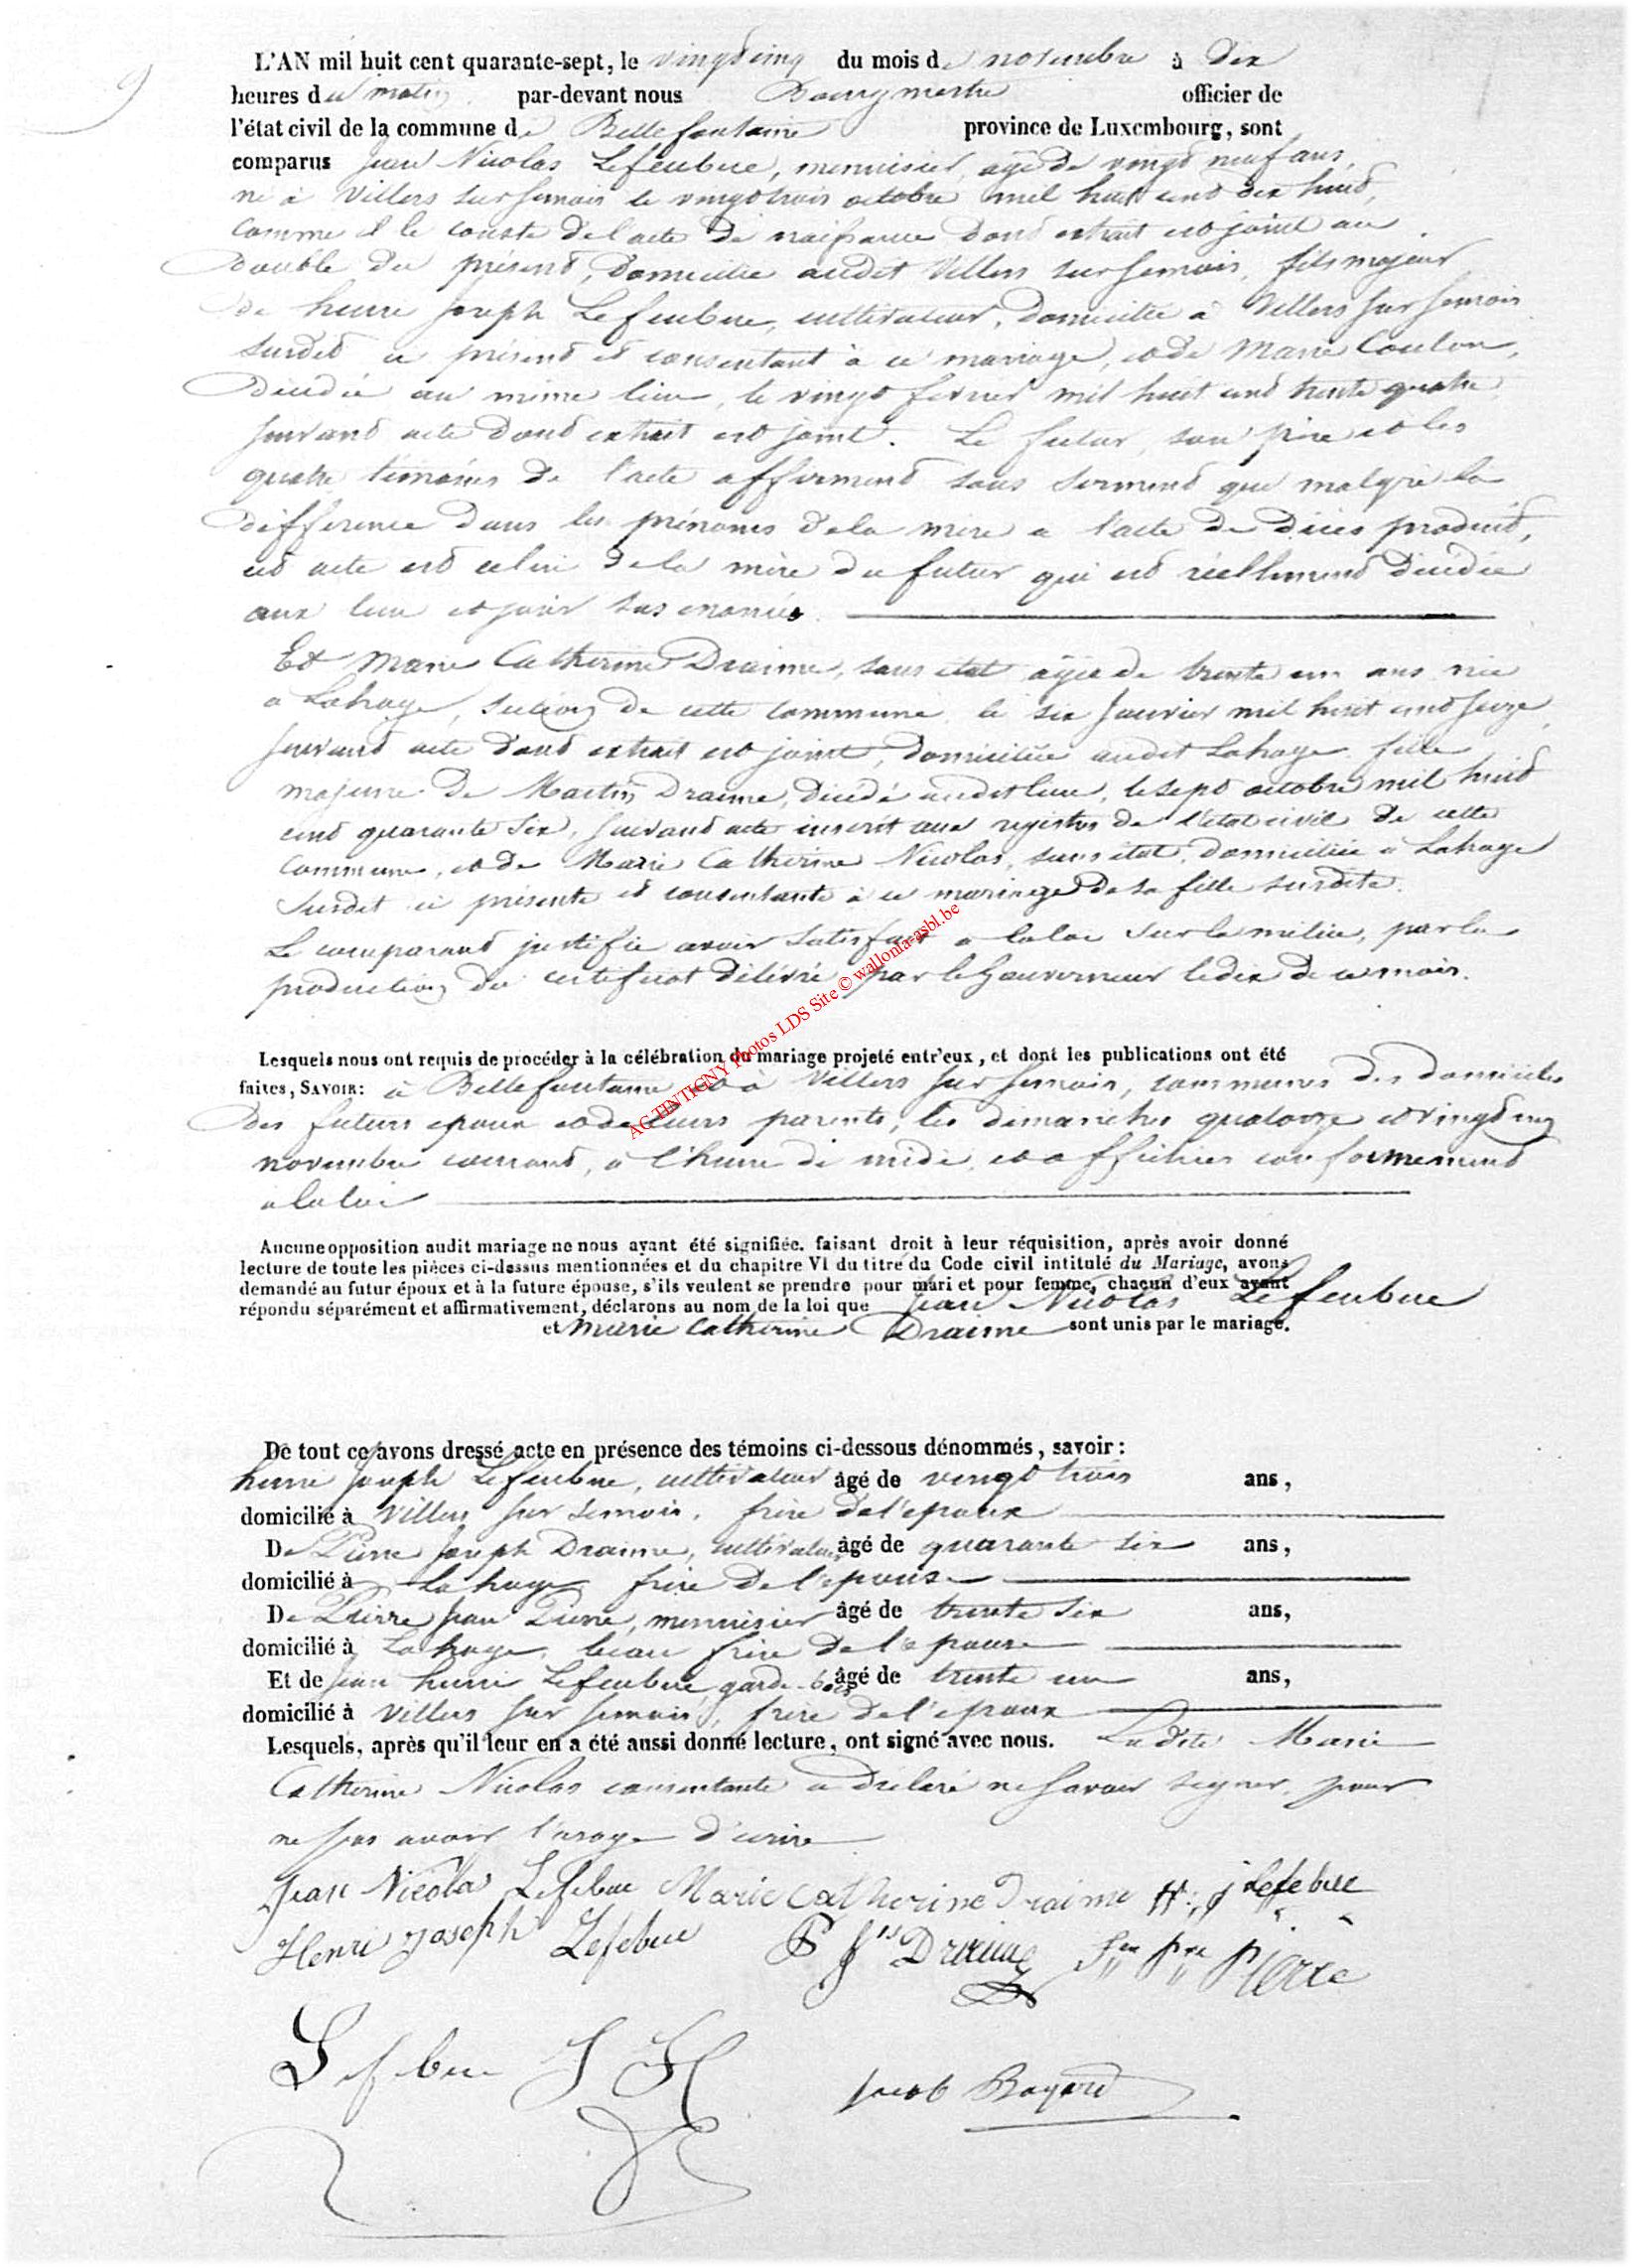 9
L'AN mil huit cent quarante-sept, le vingtcinq du mois de novembre à dix
heures du matin par-devant nous Bourgmestre officier de
l'état civil de la commune de Bellefontaine province de Luxembourg, sont
comparus Jean Nicolas Lefeubure, menuisier, agé de vingt neuf ans,
né à Villers sur Semois le vingt trois octobre mil huit cent dix huit,
comme il le conste de l'acte de naissance dont extrait est joint au
double du présent, domicilié audit Villers sur Semois, fils majeur
de henri Joseph Lefeubure, cultivateur, domicilié à Villers sur Semois
susdit ci présent et consentant à ce mariage, et de Marie Coulon,
décédée au même lieu, le vingt fevrier mil huit cent trente quatre
suivant acte dont extrait est joint. Le futur, son père et les
quatre témoins de l'acte affirment sous serment que malgré la
différence dans les prénoms de la mère a l'acte de décès produit,
cet acte est celui de la mère du futur qui est réellement décédée
aux lieu et jour sus enoncés.
Et Marie Catherine Draime, sans état agée de trente un ans née
a Lahage, section de cette commune le six Janvier mil huit cent seize
suivant acte dont extrait est joint, domiciliée audit Lahage fille
majeure de Martin Draime, décédé audit lieu, le sept octobre mil huit
cent quarante six, suivant acte inscrit aux registres de l'état civil de cette
commune, et de Marie Catherine Nicolas, sans état, domiciliée a Lahage
susdit ci présente et consentante à ce mariage de sa fille susdite.
Le comparant justifie avoir satisfait a la loi sur la milice, par la
production du certificat délivré par le Gouverneur le dix de ce mois.
AC TINTIGNY Photos LDS Site © wallonia-asbl.be
Lesquels nous ont requis de procéder à la célébration du mariage projeté entr'eux, et dont les publications ont été
faites, SAVOIR: à Bellefontaine et à Villers sur Semois, communes des domiciles
des futurs epoux et de leurs parents, les dimanches quatorze et vingt un
novembre courant, à l'heure de midi, et affichées conformement
a la loi
Aucune opposition audit mariage ne nous ayant été signifiée. faisant droit à leur réquisition, après avoir donné
lecture de toute les pièces ci-dessus mentionnées et du chapitre VI du titre du Code civil intitulé du Mariage, avons
demandé au futur époux et à la future épouse, s'ils veulent se prendre pour mari et pour femme, chacun d'eux ayant
répondu séparément et affirmativement, déclarons au nom de la loi que Jean Nicolas Lefeubure
et Marie Catherine Draime sont unis par le mariage.
De tout ce avons dressé acte en présence des témoins ci-dessous dénommés, savoir:
henri Joseph Lefeubure, cultivateur âgé de vingt trois ans,
domicilié à Villers sur Semois, frère de l'epoux
De Pierre Joseph Draime, cultivateur âgé de quarante six ans,
domicilié à Lahage frère de l'epouse
De Pierre Jean Pierre, menuisier âgé de trente six ans,
domicilié à Lahage, beau frère de l'epouse
Et de Jean henri Lefeubure, garde-bois âgé de trente un ans,
domicilié à Villers sur Semois, frère de l'epoux
Lesquels, après qu'il leur en a été aussi donné lecture, ont signé avec nous. Ladite Marie
Catherine Nicolas consentante a déclaré ne savoir signer, pour
ne pas avoir l'usage d'ecrire
Jean Nicolas Lefebue Marie Catherine Draime H: J Lefebue
Henri Joseph Lefebue P Js Draime Jn Pre Pierre
Lefebue J H
Jacob Bayard